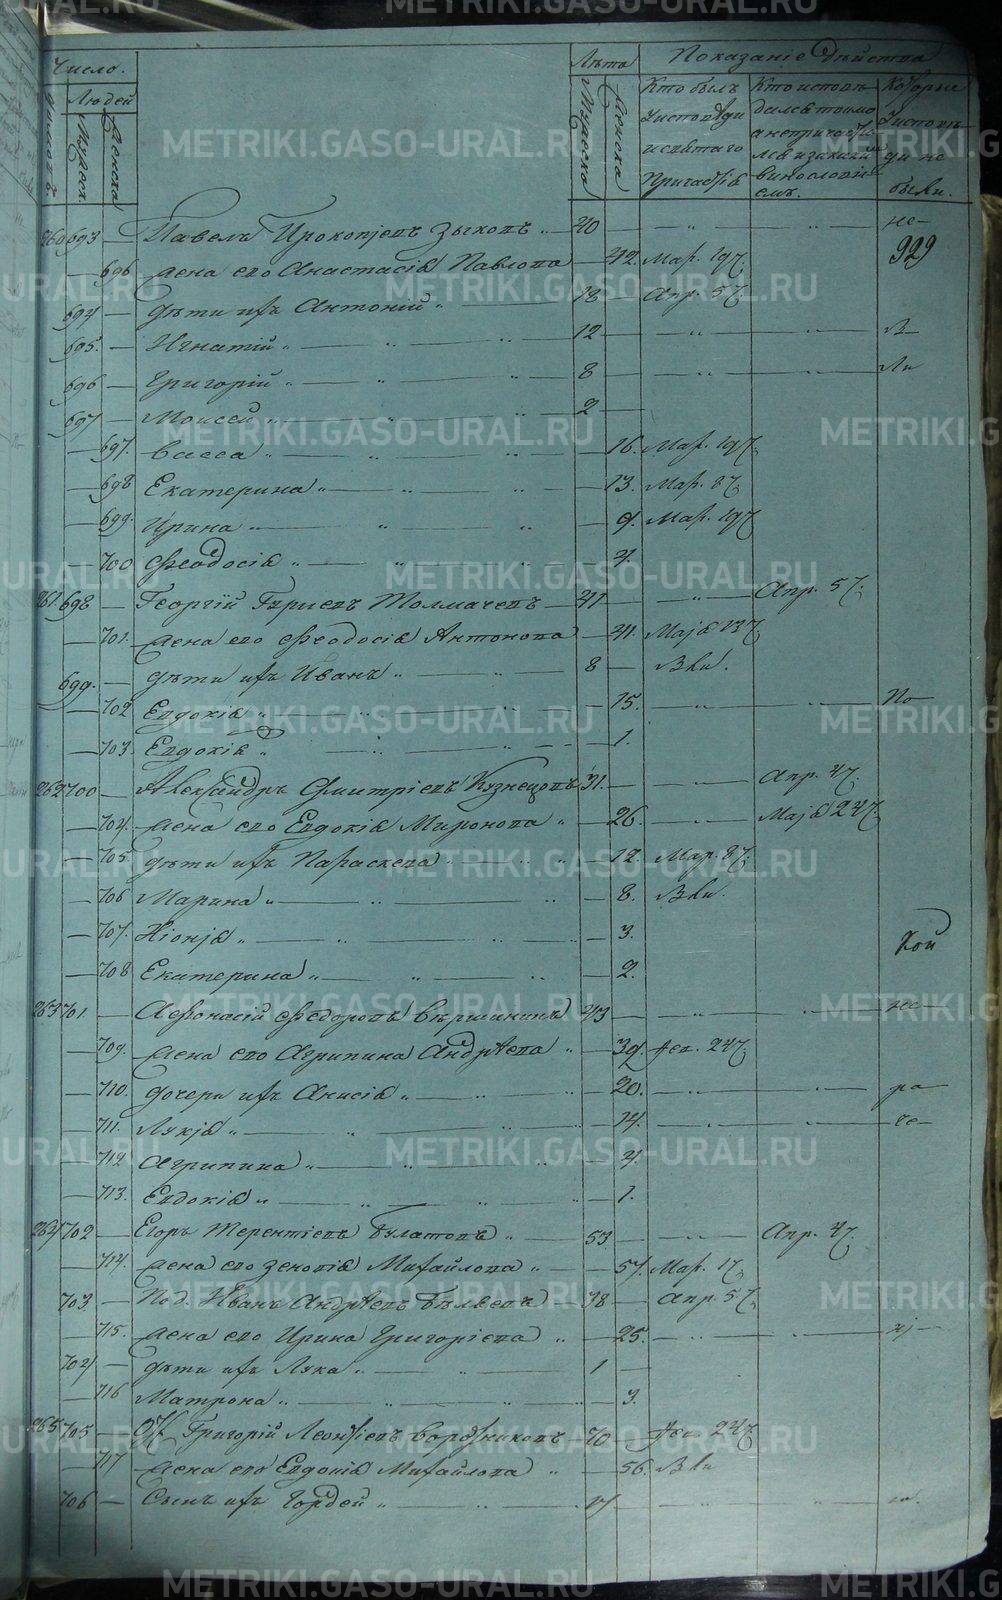 Число.
Лѣта
Показаніе Дѣйства
Людей
Мужеск.
Женска
Мужеска
Женска
Кто былъ
у исповѣди
и святаго
Причастія
Кто исповѣ
дался токмо
а не причас
Которые
у исповѣ
ди не
были.
260 693 — Павелъ Прокопіевъ Зыковъ — 40 — не-
929
— 696 Жена его Анастасія Павлова — 42. Мар. 19
694 — дѣти ихъ Антоній — 18 — Апр. 5
695. — Игнатій — 12 — В
696 — Григорій — 8 — Ли
697 — Моисей — 2 —
— 697. Васса — 16. Мар. 19
— 698 Екатерина — 13. Мар. 8
— 699. Ирина — 9. Мар. 19
— 700 Феодосія — 4.
261. 698 — Георгій Гуріевъ Толмачевъ — 41 — Апр. 5
— 701. Жена его Феодосія Антонова — 41. Маія 13
699. — дѣти ихъ Иванъ — 8 — Вли.
— 702 Евдокія — 15. — По
— 703. Евдокія — 1.
262 700 — Александръ Дмитріевъ Кузнецовъ 31. — Апр. 4
— 704. Жена его Евдокія Миронова — 26. — Маія 24
— 705. дѣти ихъ Параскева — 12. Мар. 8
— 706 Марина — 8. Вли.
— 707. — 3.
Кой
— 708 Екатерина — 2.
263 701. — Афонасій Федоровъ Вершининъ 43 — не-
— 709. Жена его Агрипина Андрѣева — 39. Фев. 24
— 710. дочери ихъ Анисія — 20. — ра-
— 711. Лукія — 14. — че-
— 712 Агрипина — 4.
— 713. Евдокія — 1.
264 702 — Егоръ Терентіевъ Булатовъ — 53 — Апр. 4
— 714. Жена его Зеновія Михайлова — 57. Мар. 1
703 — Под. Иванъ Андрѣевъ Бѣляевъ — 38 — Апр. 5
— 715. Жена его Ирина Григоріева — 25.
704 — дѣти ихъ Лука — 1 —
— 716 Матрона — 3.
265 705 — Григорій Леонтіевъ 70 — Фев 24
— 717 Жена его Евдокія Михайлова — 56. Вли
706 — Сынъ ихъ Гордей
METRIKI.GASO-URAL.RU